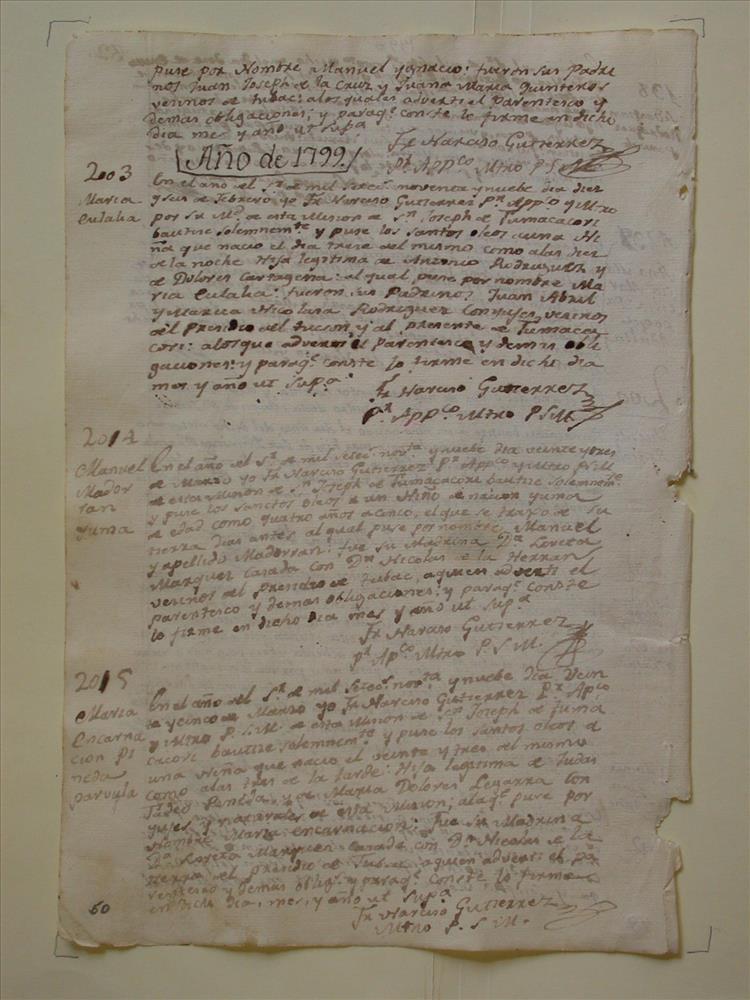 puse por Nombre Manuel Ygnacio: fueron sus Padri
nos Juan Joseph de la Cruz y Juana Maria Quinteros
vecinos de tubac: a los quales adverti el Parentesco y
demas obligaciones; y paraq.e conste lo firme en dicho
Dia mes y año ut supa
Fr Narciso Gutierrez
Pr Appco Mtro P S M
Año de 1799
203
Maria
Eulalia
En el año del Sr de mil setecs noventa y nueve dia diez
y seis de Febrero yo Fr Narciso Gutierrez Pr Appco y Mtro
por Su M.d de esta Mision de Sn Joseph de Tumacacori
bautise solemnemte y puse los Santos oleos a una Ni
ña que nacio el dia trese del mismo como a las diez
de la noche Hija legitima de Antonio Rodriguez y
de Dolores Cartagena: al qual puse por nombre Ma
ria Eulalia: fueron sus Padrinos Juan Abril
y Maria Nicolasa Rodriguez Conyuges vecinos
del Presidio del tucson, y al presente de Tumaca
cori: a los que adverti el Parentesco y demas obli
gaciones: y paraq.e conste lo firme en dicho dia
mes y año ut supa
Fr Narciso Gutierrez
Pr Appco Mtro P S M
2014
Manuel
Mador
ran
Yuma
En el año del Sr de mil setecs nov.ta y nueve dia veinte y tres
de Marzo yo Fr Narciso Gutierrez Pr Appco y Mtro P. S. M
de esta Mision de Sn Joseph de Tumacacori bautise solemnemte
y puse los Sanctos oleos a un Niño de nacion yuma
de edad como quatro años a cinco, el que se trajo de su
tierra dias antes al qual puse por nombre Manuel
y apellido Madorran: fue su Madrina Da Loreta
Marquez casada con Dn Nicolas de la Herran
vecinos del presidio de tubac, a quien adverti el
parentesco y demas obligaciones; y paraq.e conste
lo firme en dicho Dia mes y año ut supa
Fr Narciso Gutierrez
Pr Apco Mtro P. S. M.
2015
Maria
Encarna
cion Pi
neda
parvula
En el año del Sr de mil setecs nov.ta y nueve Dia vein
te y cinco de Marzo yo Fr Narciso Gutierrez Pr Apco
y Mtro P. S. M. de esta Mision de Sn Joseph de Tuma
cacori bautise solemnemte y puse los santos oleos a
una Niña que nacio el veinte y tres del mismo
como a las tres de la tarde: Hija legitima de Judas
Tadeo Pineda, y de Maria Dolores Legarra Con
yujes y naturales de esta Mision; a la q.e puse por
Nombre Maria encarnacion: fue su Madrina
Da Loreta Marquez casada con Dn Nicolas de la
Herran del presidio de Tubac a quien adverti el pa
rentesco y demas oblig.s y paraq.e conste lo firme
en dicho dia, mes, y año ut supa
Fr Narciso Gutierrez
Mtro P. S. M.
60